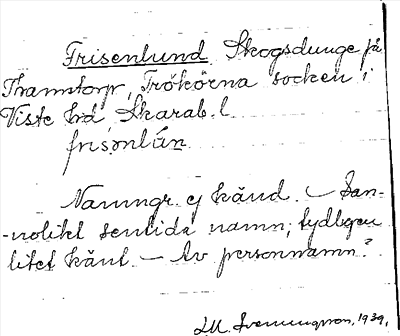 Frisenlund Skogsdunge på
Thamstorp, Trökörna socken i
Viste hd Skarab. l.
frisonlún
Namngr. ej känd. – San-
-nolikt sentida namn, tydligen
litet känt. – Av personnamn?
1939.